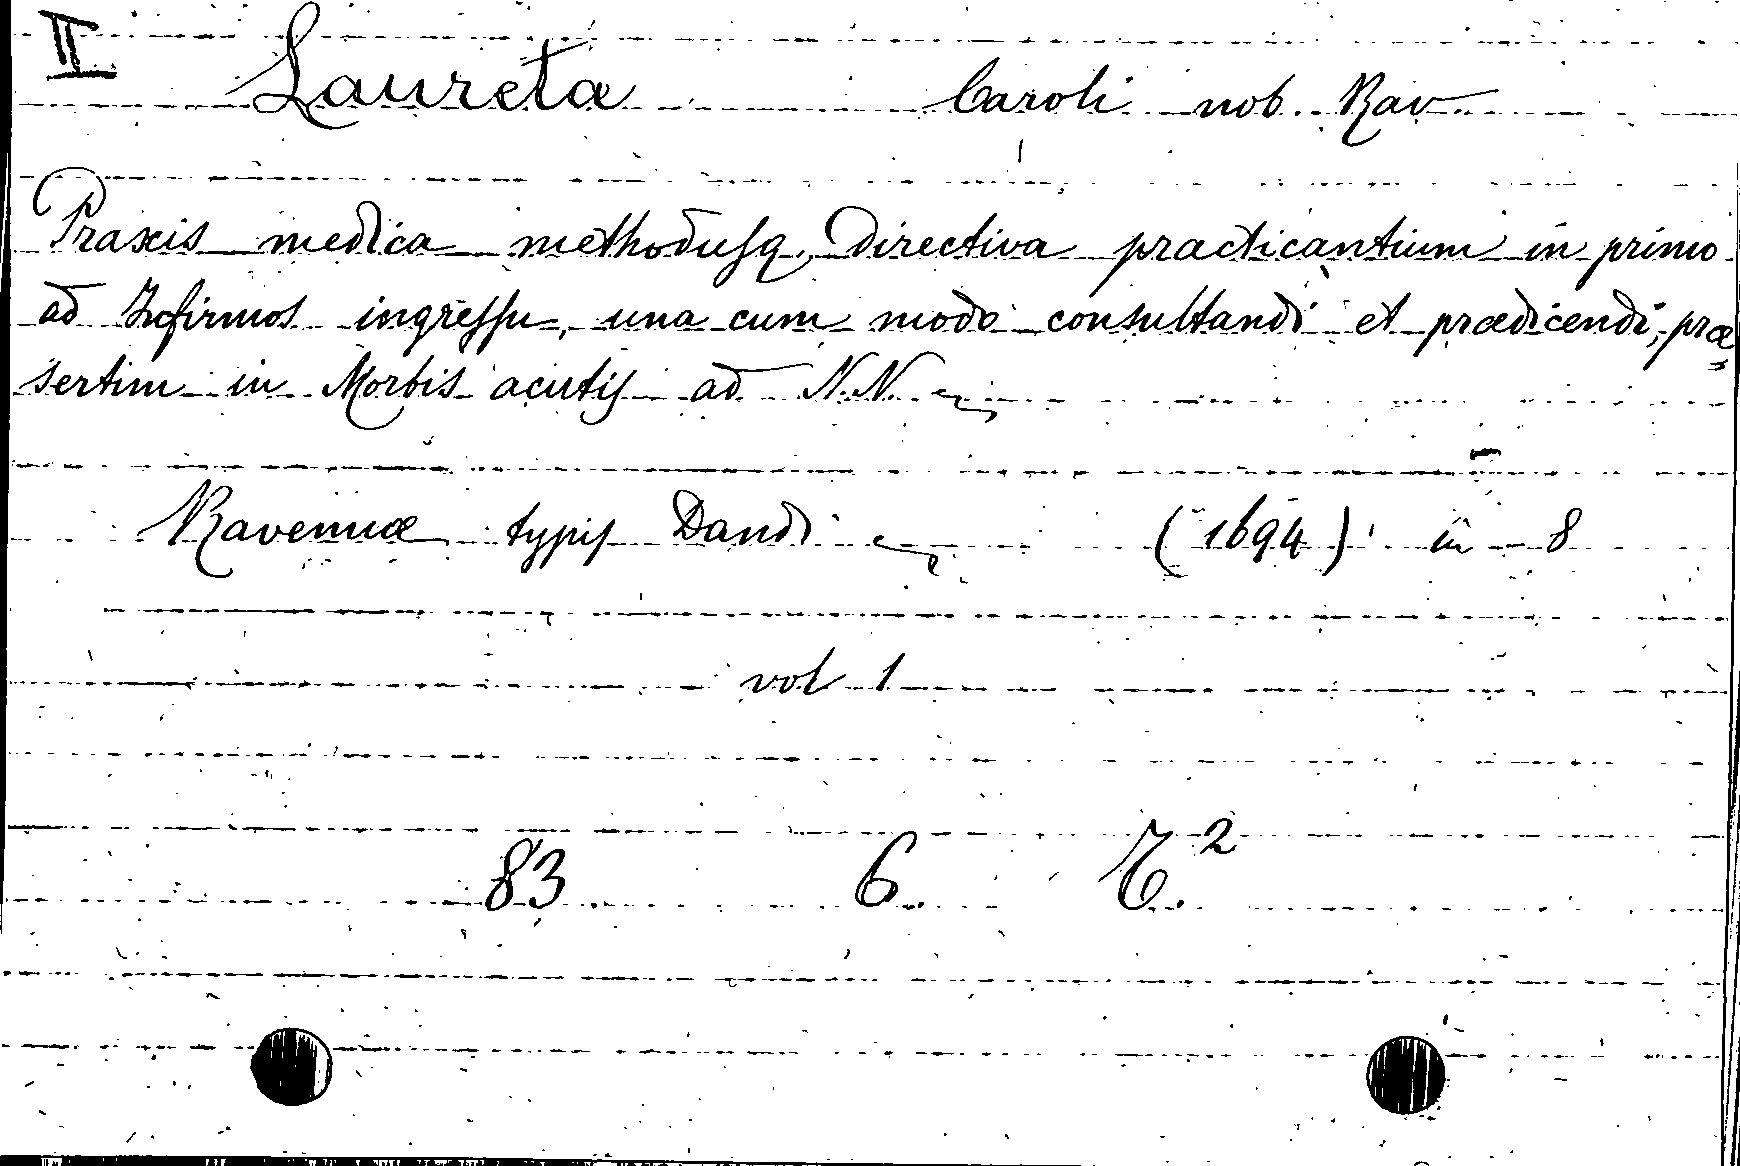 II Laureta Caroli nob. Rav.
Praxis medica methodusq, directiva practicantium in primo
ad Infirmos ingressu, una cum modo consultandi et prædicendi, præ=
sertim in Morbis acutis ad N.N.
Ravennæ typis Dandi (1694) in 8
vol 1
83 6. E.2